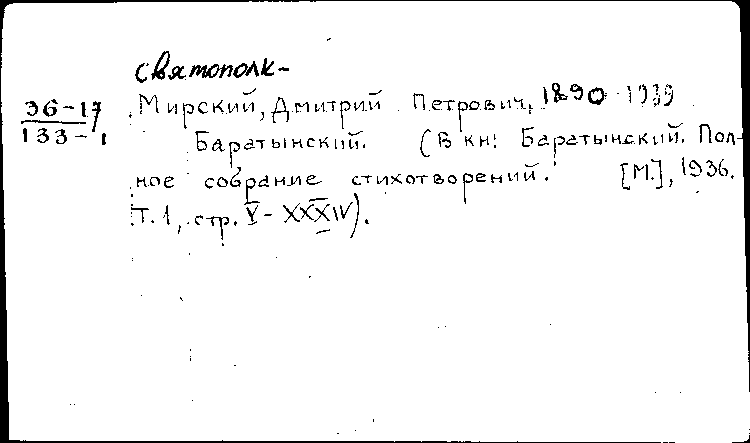 Святополк-
36-17 Мирский, Дмитрий Петрович, 1890-1939
133-1 Баратынский. (В кн: Баратынский. Пол-
ное собрание стихотворений. [М.], 1936.
Т. 1, стр. V - XXXIV).